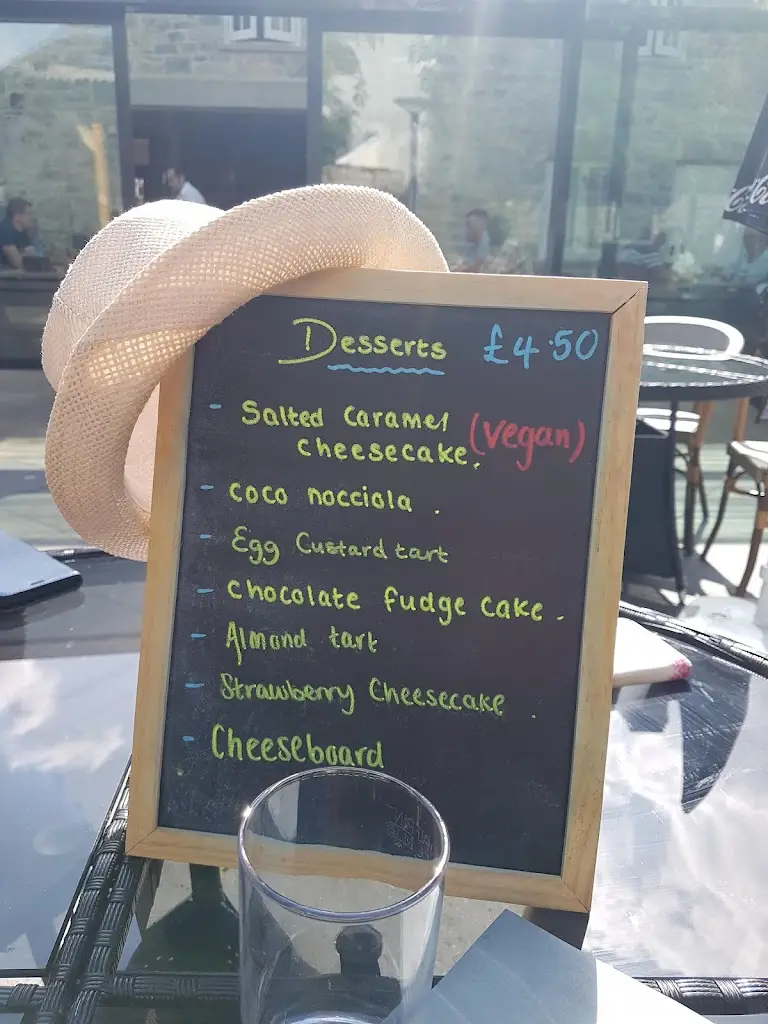 Desserts £4.50
- Salted Caramel (vegan)
cheesecake.
- coco nocciola .
- Egg Custard tart
- chocolate fudge cake .
- Almond tart
- Strawberry Cheesecake .
- Cheeseboard